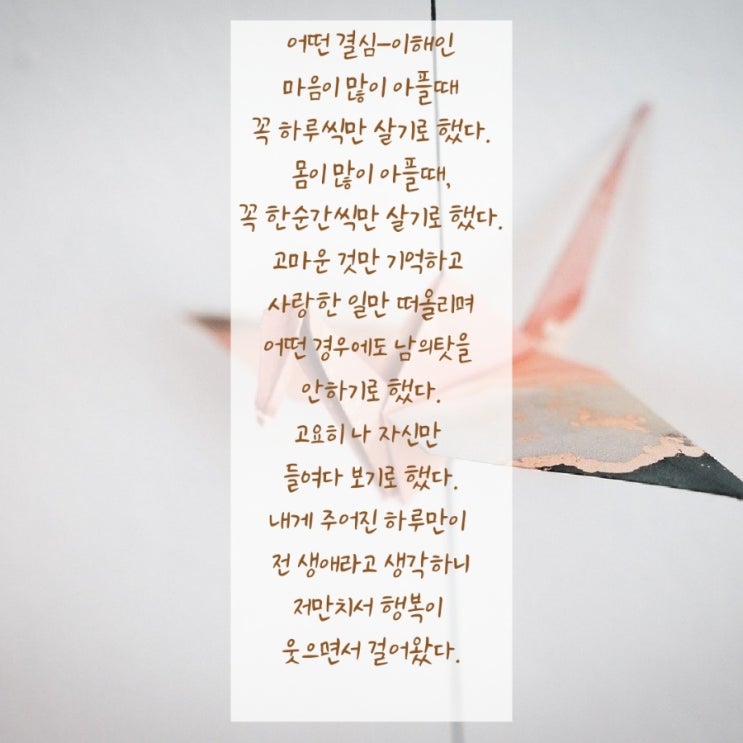 어떤 결심-이해인
마음이 많이 아플때
꼭 하루씩만 살기로 했다.
몸이 많이 아플때,
꼭 한순간씩만 살기로 했다.
고마운 것만 기억하고
사랑한 일만 떠올리며
어떤 경우에도 남의탓을
안하기로 했다.
고요히 나 자신만
들여다 보기로 했다.
내게 주어진 하루만이
전 생애라고 생각하니
저만치서 행복이
웃으면서 걸어왔다.